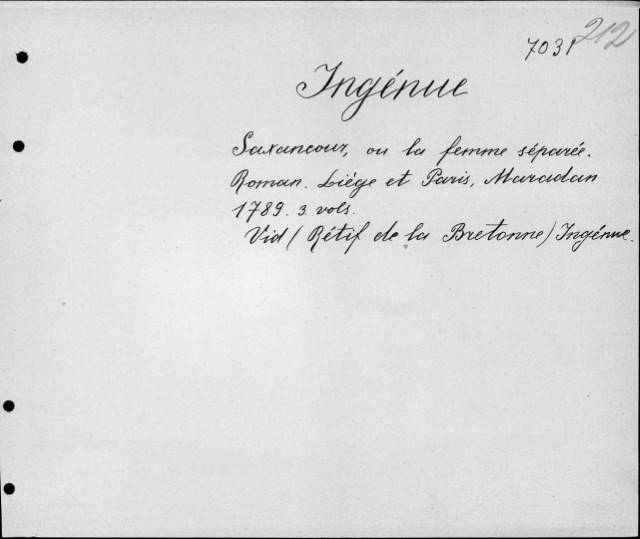 7031 212
Ingénue
Saxancour, ou la femme séparée.
Roman. Liége et Paris, Maradan
1789. 3 vols.
Vid (Rétif de la Bretonne) Ingénue.